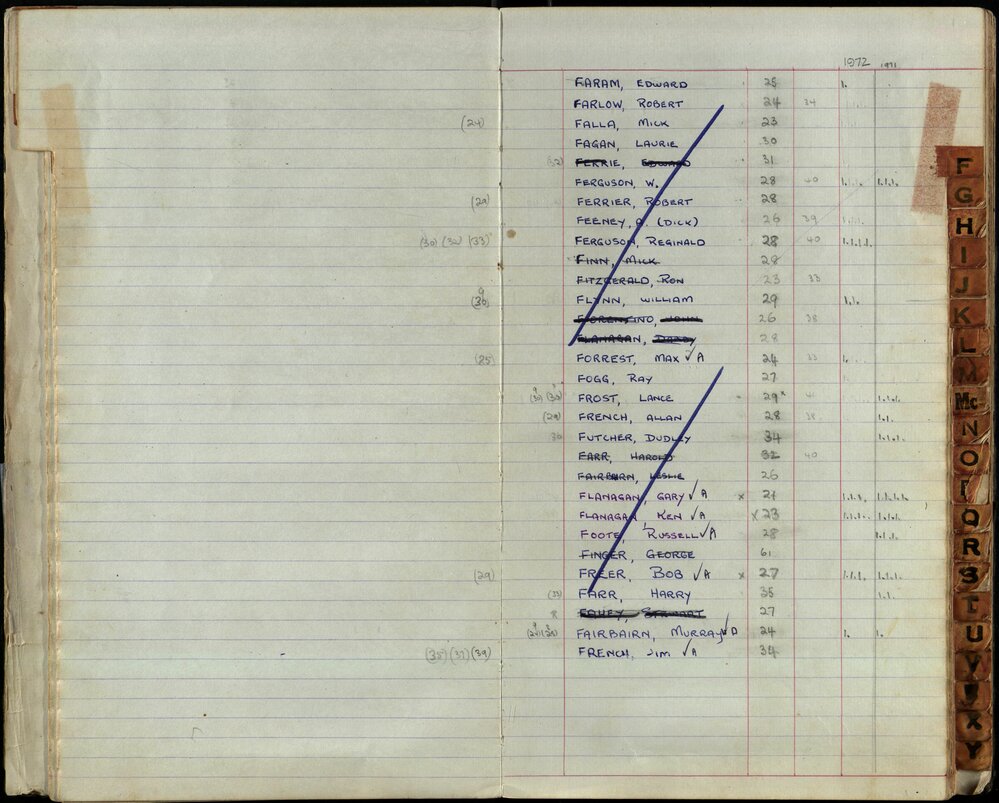 1972 1971
FARAM, EDWARD 25 1.
FARLOW, ROBERT 24 34
(24) FALLA, MICK 23
FAGAN, LAURIE 30
(32) FERRIE, EDWARD 31
FERGUSON, W. 28 40 1.1. 1.1.1.
(29) FERRIER, ROBERT 28
FEENEY, A. (DICK) 26 39 1.1.
(30) (32) (33) FERGUSON, REGINALD 28 40 1.1.1.1.
FINN, MICK 28
FITZGERALD, RON 23 33
(30) FLYNN, WILLIAM 29 1.1.
FIORENTINO, JOHN 26 38
FLANAGAN, 28
(25) FORREST, MAX ✓A 24 33 1.
FOGG, RAY 27
(30) (30) FROST, LANCE 29x 1.1.1.
(29) FRENCH, ALLAN 28 38 1.1.
30 FUTCHER, DUDLEY 34 1.1.1.
FARR, HAROLD 32 40
FAIRBAIRN, LESLIE 26
FLANAGAN, GARY ✓A x 21 1.1.1. 1.1.1.1.
FLANAGAN KEN ✓A x 23 1.1.1. 1.1.1.
FOOTE, RUSSELL ✓A 28 1.1.
FINGER, GEORGE 61
(29) FREER, BOB ✓A x 27 1.1.1. 1.1.1.
(35) FARR, HARRY 35 1.1.
FAHEY, STEWART 27
FAIRBAIRN, MURRAY ✓A 24 1. 1.
(35) (37) (39) FRENCH, JIM ✓A 34
F
G
H
I
J
K
L
M
Mc
N
O
P
Q
R
S
T
U
V
X
Y